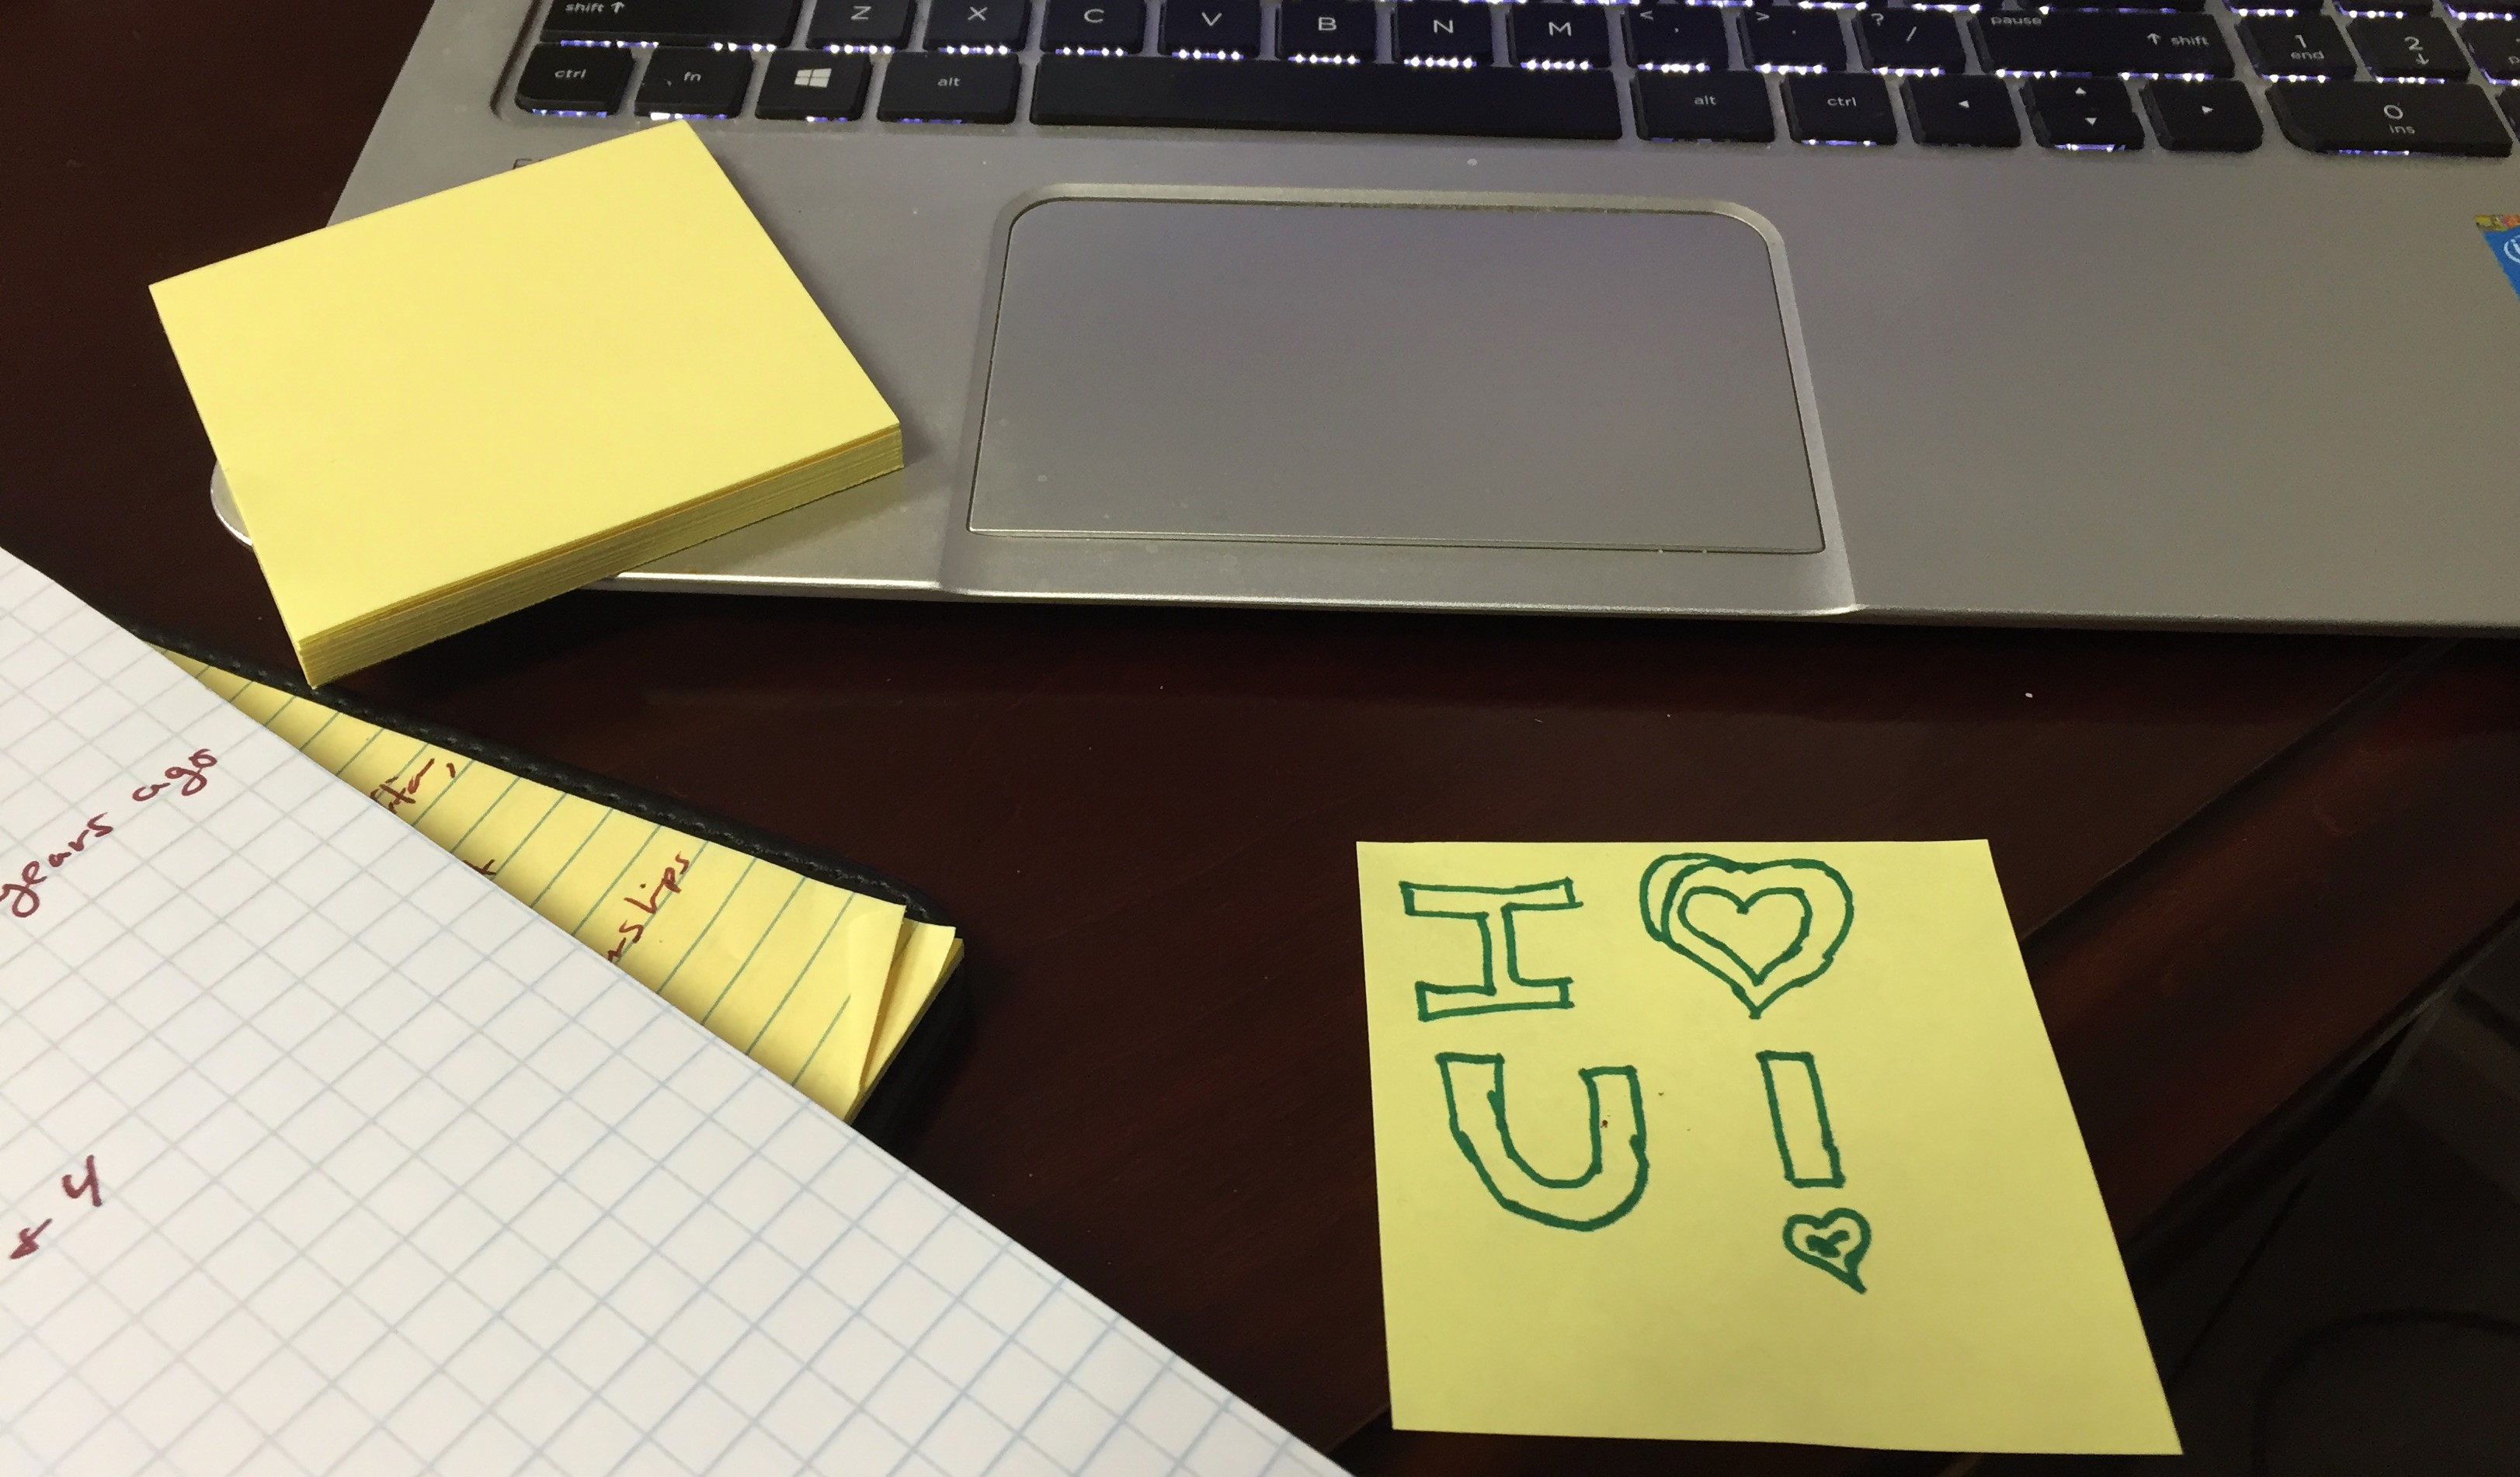 shift ↑ Z X C V B N M < , > . ? / pause ↑ shift 1 end 2 ↓
ctrl fn alt alt ctrl ◄ ▲ ▼ ► 0 ins
years ago
4
I ♡
U !